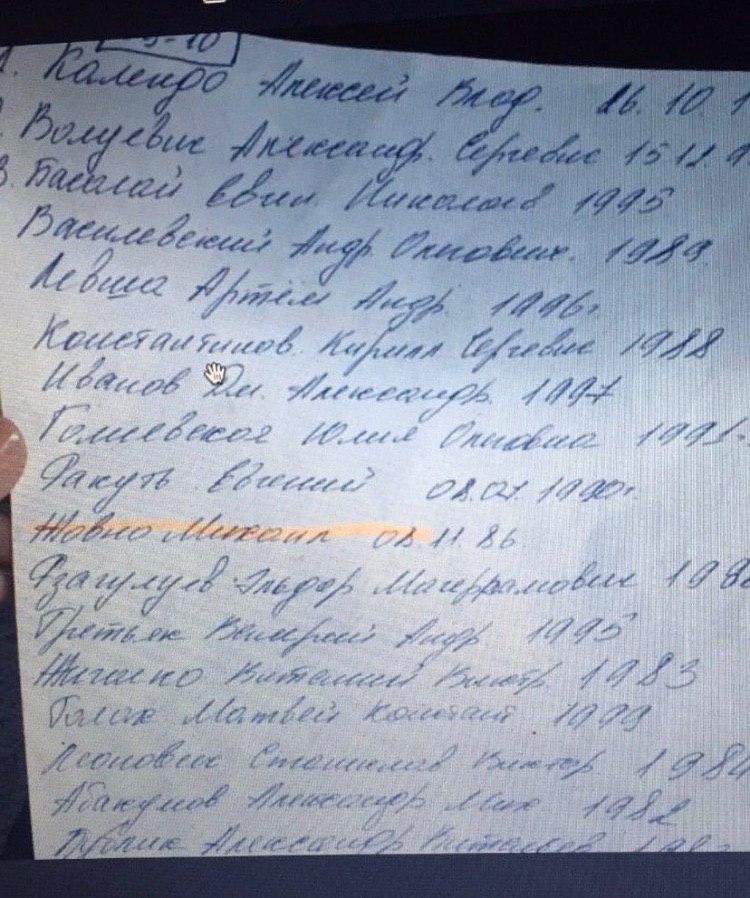 -10
1. Календо Алексей Влад. 26.10.1
Волуевич Александр. Сергевич 15.12.9
3. Басалай Евги. Николаев 1995
Василевский Андр Олегович. 1989
Левша Артём Андр. 1996г
Константинов. Кирилл Сергевич 1988
Иванов Дм. Александр. 1997
Голиевская Юлия Олеговна 1991
Факуть Евгений 08.07.1990г.
Жовно Михаил 08.11.86
Эльдар Магеррамович 198
Третьяк Валерий Андр. 1995
Жигалко Виталий Виктр. 1983
Голик Матвей Констант 1999
Леонович Станислав Виктор 1984
Абакумов Александр Мих 1982
Александр Витальев 198